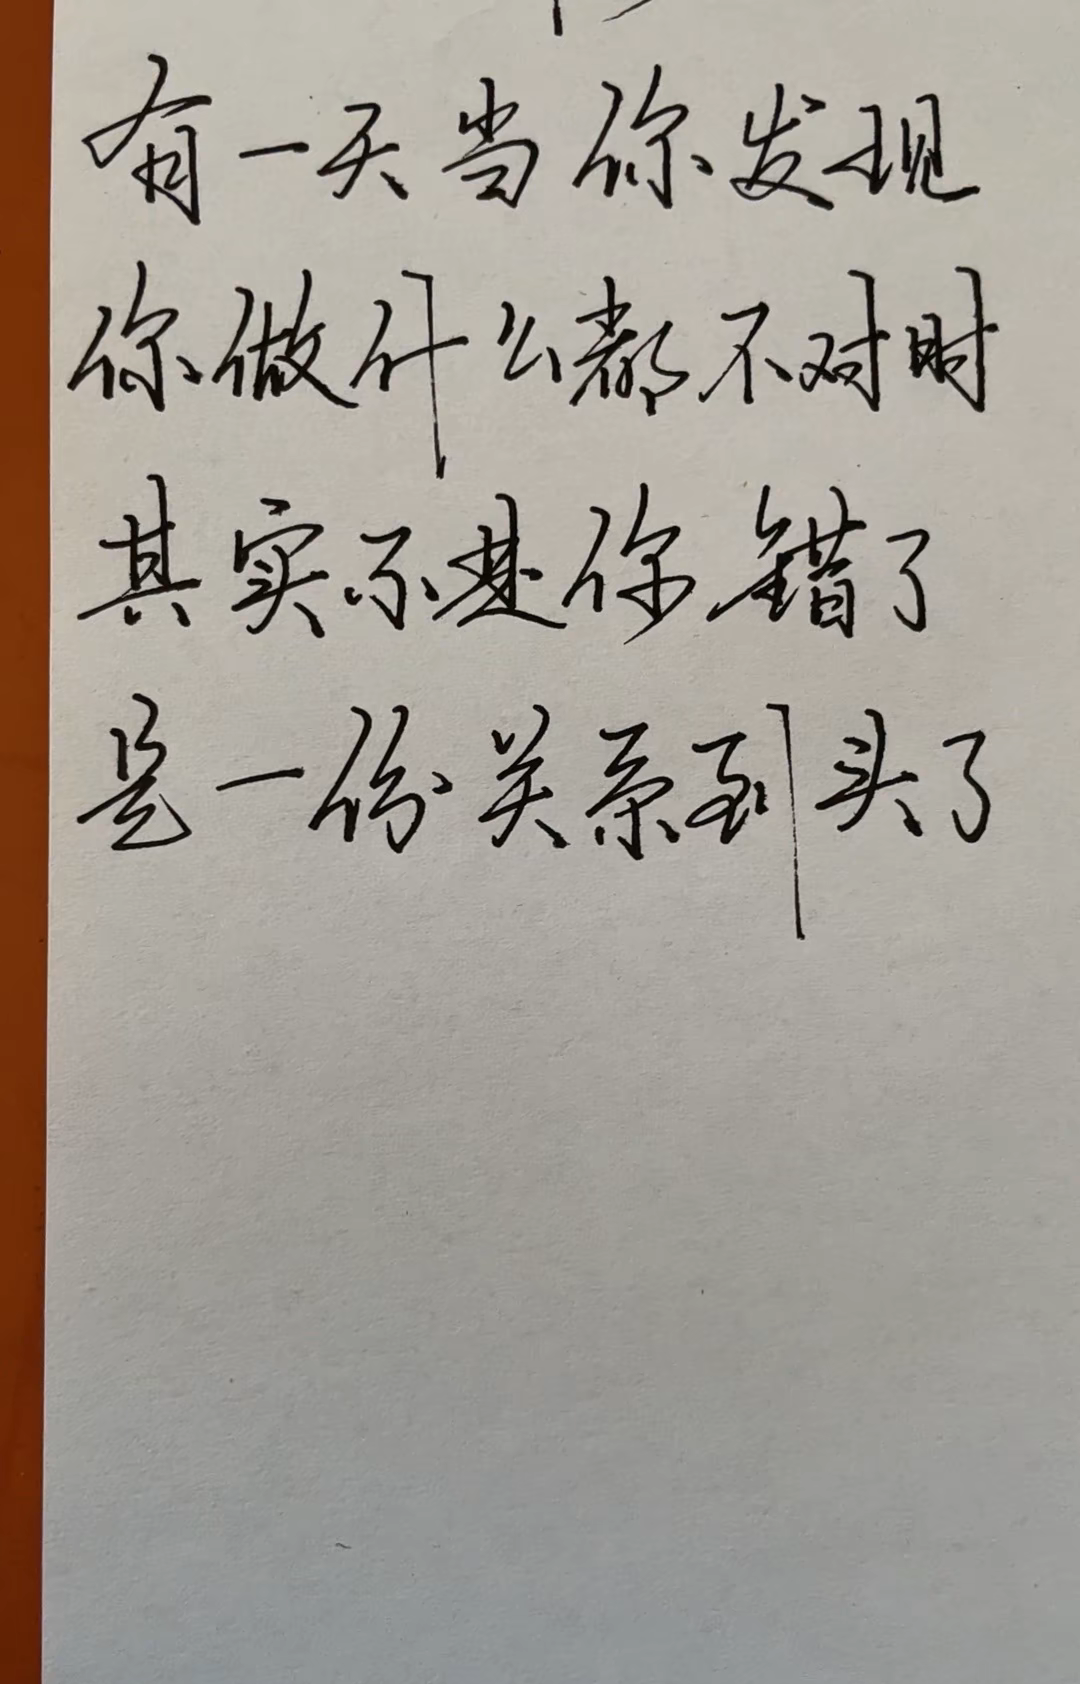 有一天当你发现
你做什么都不对时
其实不是你错了
是一份关系到头了